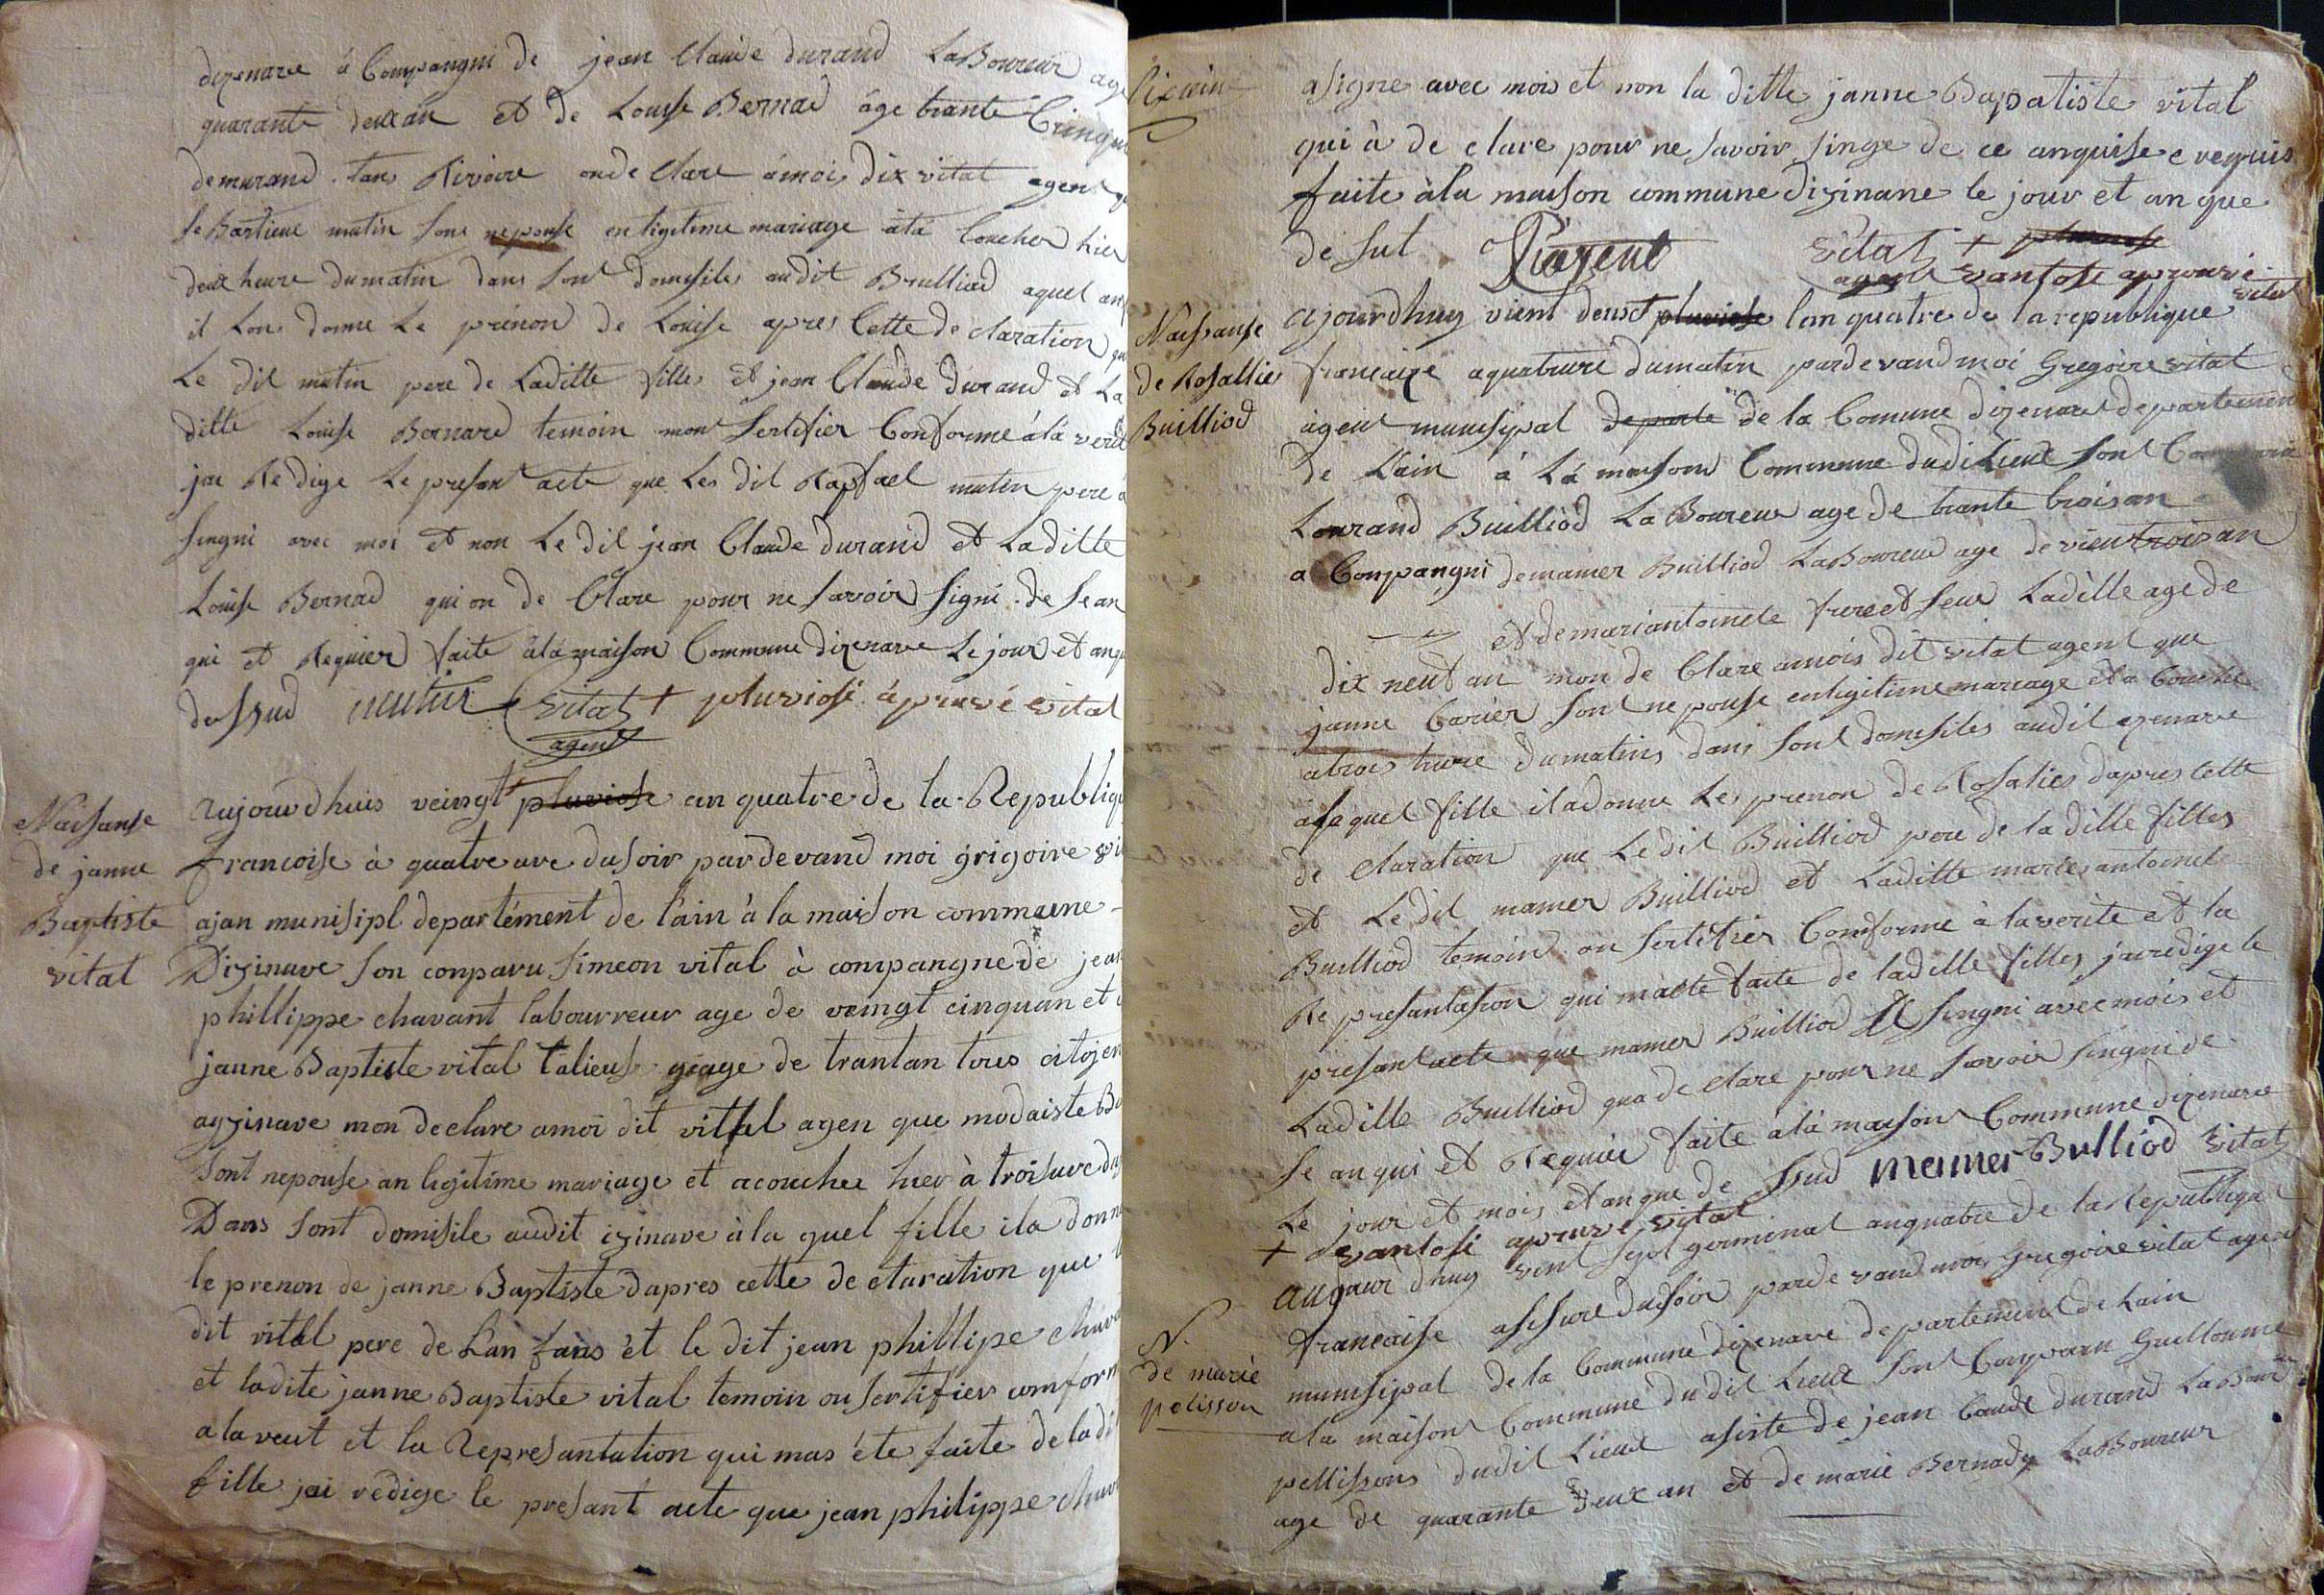 dizenave á Compangni de jean Claude durand LaBoureur age
quarante deuxán et de Louise Bernad áge trante Cinque
demurand tan Rivoire onde Clare ámois dix vital agent
leBartieue mutin sone nepouse enligitime mariage átá Coucher hier
deux heure dumatin dans sont domisiles audit Brulliod aquel
il Lon donne Le prénon de Louise apres Cette de claration
Le dit mutin pere de Laditte filles et jean Claude Durand et La
ditte Louise Bernard temoin mon Sertifier Conforme á lá verité
jai Redige Le presant acte que Les dit Rapfael mutin pere á
singni avec moi et non Le dit jean Claude durand et Laditte
Louise Bernad qui on de Clare pour ne savoir signi de se an
qui et Requier faite álá maison Commune dizenave Le jour et anque
dessud mutin vital + pluviose ápruvé vital
agent
Naisanse
de janne
Baptiste
vital
aujourdhuis veingt pluviose an quatre de la Republique
francoise à quatre ure dusoir pardevand moi grigoire
ajan munisipl departément de l'ain à la maison commune
Disinave son conparu simeon vital à compangne de jean
phillippe chavant labourreur age de veingt cinquan et
janne Baptiste vital talieuse age de trantan tous citojen
aysinave mon declare amoi dit vital agen que modaiste
sont nepouse an ligitime mariage et acouchee hier à troisure
Dans sont domisile audit isinave à la quel fille ila donn
le prenon de janne Baptiste dapres cette de claration que
dit vital pere de Lan fans et le dit jean phillipe
et ladite janne Baptiste vital temoin on sertifier comform
ala verit et la Represantation qui mas éte faite de la
fille jai redige le presant acte que jean philippe
asigne avec mois et non la ditte janne Bapatiste vital
qui à de clare pour ne savoir singe de ce anquise e requis
faite àla maison commune disinane le jour et an que
de sul vital + pluviose
agent vantose aprouvé
vital
Naissanse
de Rosallies
Builliod
ajourdhuy vient deuxt pluviose lan quatre de la republique
francaize aquatrure dumatin pardevand moi Gregoire vital
agent munisipal departe de la Comune dizenave departement
de Lain á Lá maisone Commune dudi Lieux sont
Lourand Builliod LaBoureur age de trante troisan
a Compangni demamer Builliod LaBoureur age de vieutroisan
et demariantoinete frere et seur Laditte age de
dix neuf an mon de Clare amois dit vital agent que
janne Carier sont nepouse enligitime mareage eta Couche
atrois hure dumatins dans sont domisiles audit azenave
alaquel fille iladonne Les prenon de Rosalies dapres Cette
de claration que Le dit Builliod pere de la ditte filles
et Le dit mamer Builliod et Laditte marie antoinete
Builliod temoin on sertifier Comforme à laverite et la
Represantasion qui macte faite de laditte filles jairedige le
presantacte que mamer Builliod A singni avecmois et
Laditte Builliod qua de clare pour ne savoir singni de
se anqui et Requier faite alá maison Commune dizenave
Le jour et mois etanque de ssud mamer Bulliod vital
+ vantosi apruvé vital
N.
de marie
pelisson
aujourdhuy vint sept germinal anquatre de la Republique
francaise asisure dusoir parde vand moi Gregoire vital agent
munisipal de la Commune dizenave departement de Lain
ala maison Commune dudit Lieux sont Conparu Guilloume
pellissons dudit Lieux asiste de jean Caude durand LaBour
age de quarante deux an et de marie Bernady LaBoureur